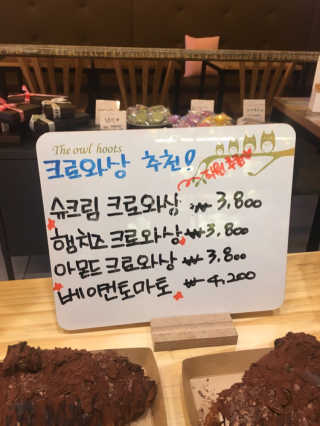 The owl hoots
크로와상 추천!
직원 추천
슈크림 크로와상 ₩ 3,800
햄치즈 크로와상 ₩ 3,800
아몬드 크로와상 ₩ 3,800
베이컨토마토 ₩ 4,200